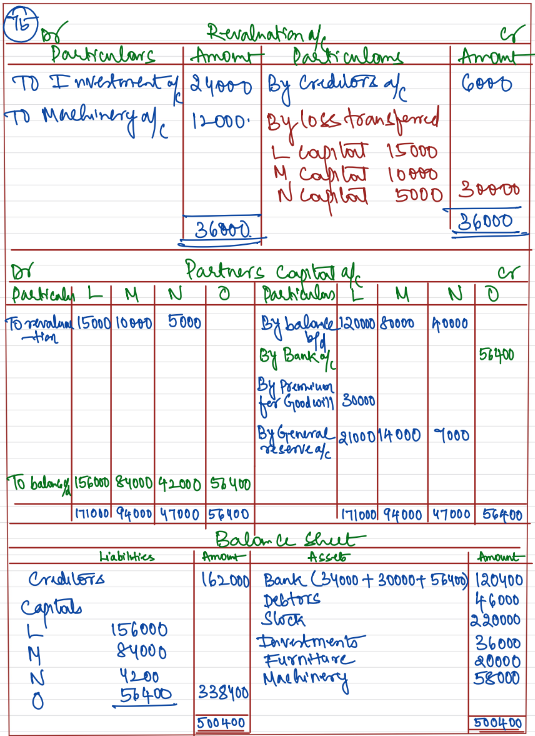 75
Dr Revaluation a/c Cr
Particulars Amount Particulars Amount
To Investment a/c 24000 By Creditors a/c 6000
To Machinery a/c 12000. By loss transferred
L capital 15000
M capital 10000
N capital 5000 30000
36000 36000
Dr Partners Capital a/c Cr
Particulars L M N O Particulars L M N O
To revaluation 15000 10000 5000 By balance b/d 120000 80000 40000
By Bank a/c 56400
By Premium for Goodwill 30000
By General reserve a/c 21000 14000 7000
To balance c/d 156000 84000 42000 56400
171000 94000 47000 56400 171000 94000 47000 56400
Balance Sheet
Liabilities Amount Assets Amount
Creditors 162000 Bank (34000 + 30000 + 56400) 120400
Capitals Debtors 46000
Stock 220000
L 156000 Investments 36000
M 84000 Furniture 20000
N 4200 Machinery 58000
O 56400 338400
500400 500400